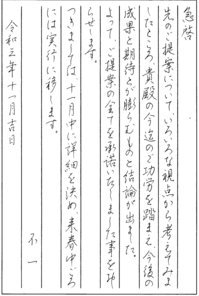 急啓
先のご提案について いろいろな視点から考えてみま
したところ 貴殿の今迄のご功労を踏まえ 今後の
成果と期待とが膨らむものと結論が出ました。
よって、ご提案の全てを承諾いたしました事をお知
らせします。
つきましては 十一月中に詳細を決め 来春中ごろ
には実行に移します。
不一
令和元年十一月吉日